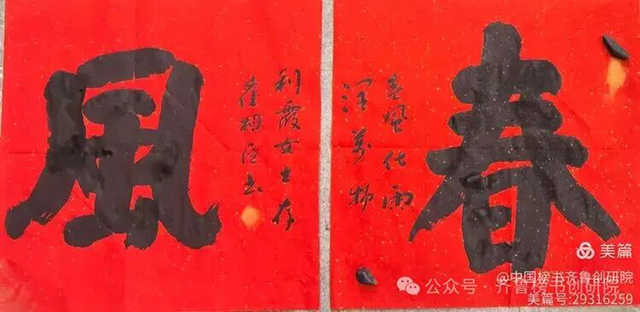 春
春风化雨
泽万物
風
利霞女士存
崔相臣书
美篇
@中国榜书齐鲁创研院
公众号·齐鲁榜书创研院
美篇号:29316259